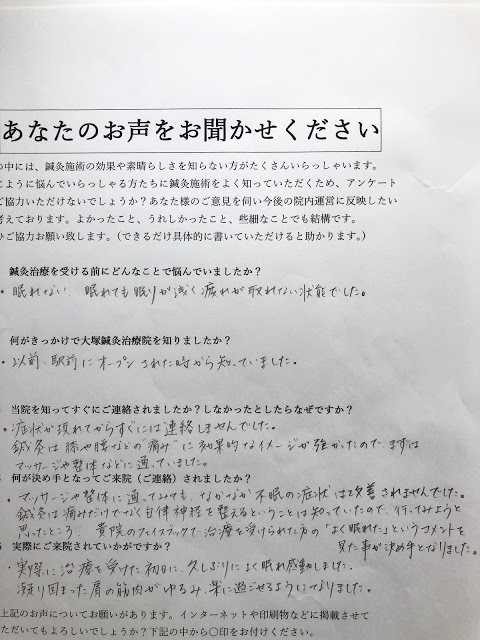 あなたのお声をお聞かせください
の中には、鍼灸施術の効果や素晴らしさを知らない方がたくさんいらっしゃいます。
このように悩んでいらっしゃる方たちに鍼灸施術をよく知っていただくため、アンケート
ご協力いただけないでしょうか？あなた様のご意見を伺い今後の院内運営に反映したい
考えております。よかったこと、うれしかったこと、些細なことでも結構です。
ひご協力お願い致します。（できるだけ具体的に書いていただけると助かります。）
鍼灸治療を受ける前にどんなことで悩んでいましたか？
・眠れない、眠れても眠りが浅く疲れが取れない状態でした。
何がきっかけで大塚鍼灸治療院を知りましたか？
・以前、駅前にオープンされた時から知っていました。
当院を知ってすぐにご連絡されましたか？しなかったとしたらなぜですか？
・症状が現れてからすぐには連絡しませんでした。
鍼灸は膝や腰などの"痛み"に効果的なイメージが強かったので、まずは
マッサージや整体などに通っていました。
何が決め手となってご来院（ご連絡）されましたか？
・マッサージや整体に通ってみても、なかなか不眠の症状は改善されませんでした。
鍼灸は痛みだけでなく自律神経を整えるということは知っていたので、行ってみようと
思ったところ、貴院のフェイスブックで治療を受けられた方の「よく眠れた」というコメントを
見た事が決め手となりました。
実際にご来院されていかがですか？
・実際に治療を受けた初日に、久しぶりによく眠れ感動しました。
凝り固まった肩の筋肉がゆるみ、楽に過ごせるようになりました。
上記のお声についてお願いがあります。インターネットや印刷物などに掲載させて
ただいてもよろしいでしょうか？下記の中から〇印をお付けください。